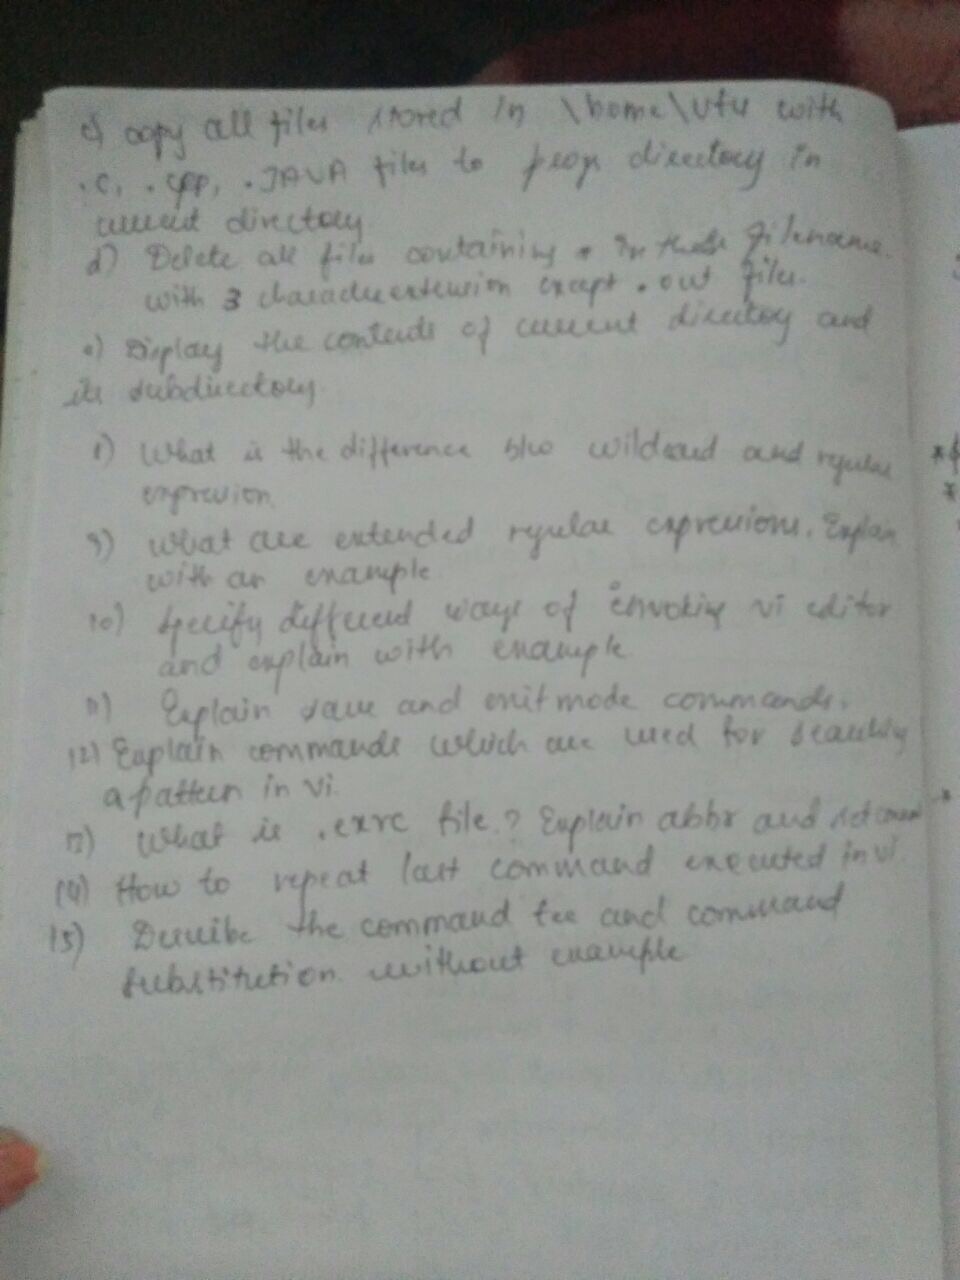 c) copy all files stored in \home\vtu with
.c, .cpp, .JAVA files to progs directory in
current directory
d) Delete all files containing * in their filename
with 3 character extension except .out files.
e) Display the contents of current directory and
its subdirectory
8) What is the difference b/w wildcard and regular
expression
9) What are extended regular expressions. Explain
with an example
10) Specify different ways of invoking vi editor
and explain with example
11) Explain save and exit mode commands.
12) Explain commands which are used for searching
a pattern in vi.
13) What is .exrc file? Explain abbr and set
14) How to repeat last command executed in vi
15) Describe the command tee and command
substitution without example